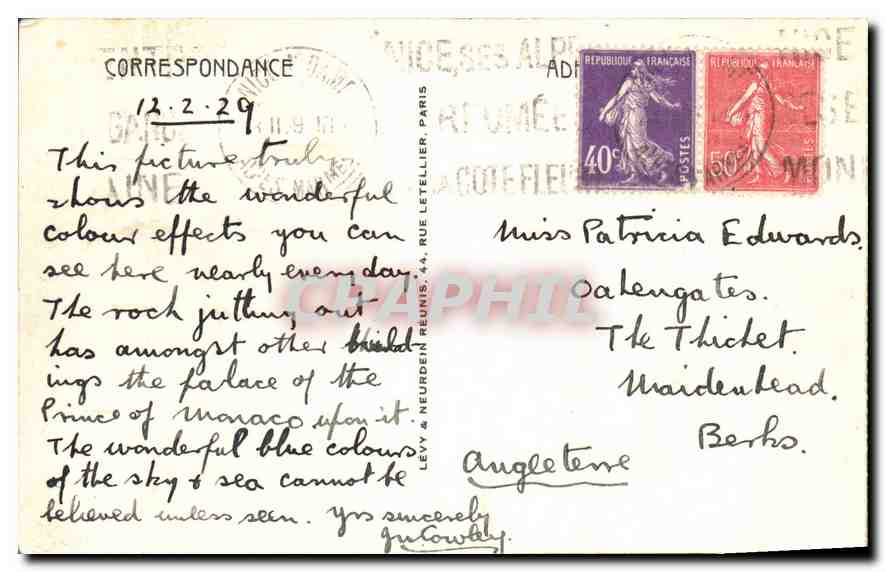 CORRESPONDANCE
12.2.29
This picture truly
shows the wonderful
colour effects you can
see here nearly every day.
The rock jutting out
has amongst other build-
ings the palace of the
Prince of Monaco upon it.
The wonderful blue colours
of the sky & sea cannot be
believed unless seen. Yrs sincerely
LÉVY & NEURDEIN RÉUNIS, 44, RUE LETELLIER, PARIS
NICE, SES ALPE
LA COTE FLEU
REPUBLIQUE FRANÇAISE
40c
POSTES
REPUBLIQUE FRANÇAISE
50c
POSTES
Miss Patricia Edwards.
Oakengates.
The Thicket.
Maidenhead.
Berks.
Angleterre
CPAPHIL